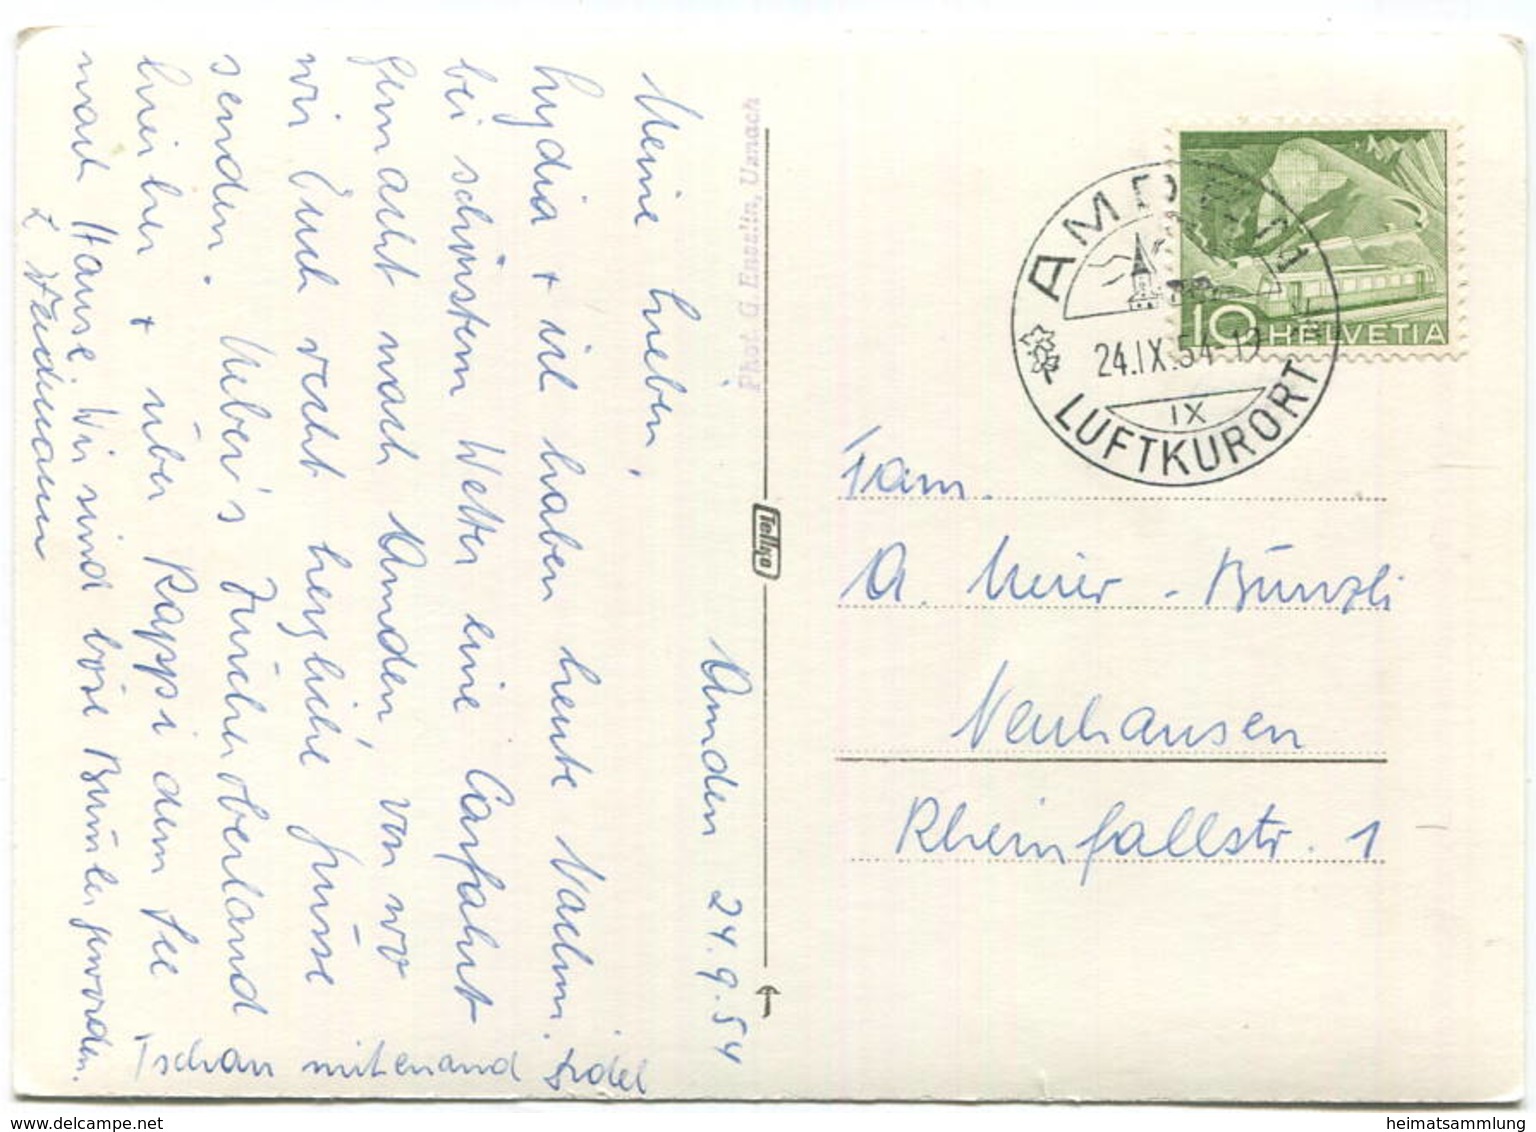 Amden 24.9.54
Meine Lieben,
Lydia + ich haben heute Nachm.
bei schönstem Wetter eine Carfahrt
gemacht nach Amden, von wo
wir Euch recht herzliche Grüsse
senden. Ueber's Zürcheroberland
hierher + über Rappi dem See
nach Hause. Wir sind böse Bumler geworden.
Tschau mitenand
Phot. G Ensslin, Uznach
Tellko
AMDEN
24.IX.54
IX
LUFTKURORT
10 HELVETIA
Fam.
A. Meier - Bünzli
Neuhausen
Rheinfallstr. 1
heimatsammlung@delcampe.net